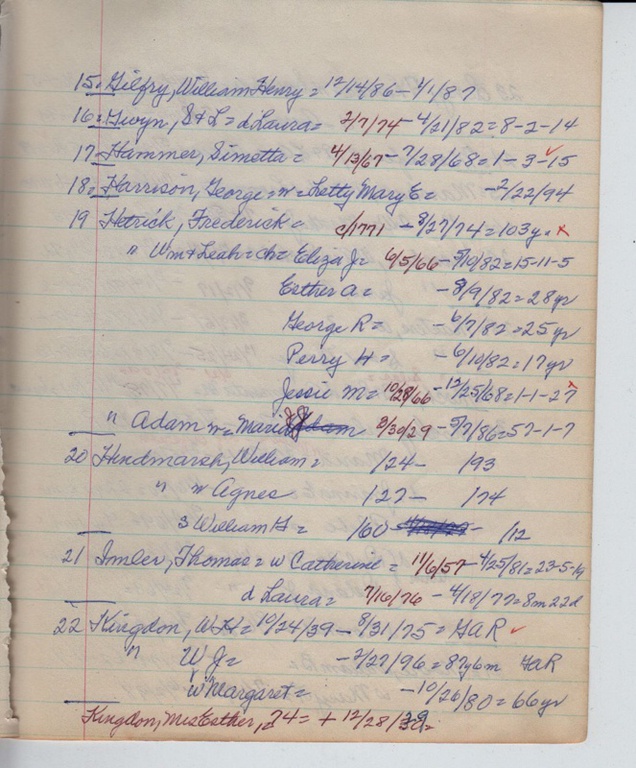 15. Gilfry, William Henry = 12/14/86 - 4/1/87
16 = Gwyn, S & L = d Laura = 2/7/74 - 4/21/82 = 8-2-14
17 Hammer, Simetta = 4/13/67 - 7/28/68 = 1-3-15
18 = Harrison, George = w = Letty Mary E = - 2/22/94
19 Hetrick, Frederick = c/1771 - 8/27/74 = 103y. x
" Wm + Leah = ch = Eliza J = 6/5/66 - 5/10/82 = 15-11-5
Esther A = - 8/9/82 = 28 yr
George R = - 6/7/82 = 25 yr
Perry H = - 6/10/82 = 17 yr
Jessie M = 10/28/66 - 12/25/68 = 1-1-27 x
" Adam w = Maria 3/30/29 - 5/7/86 = 57-1-7
20 Hindmarsh, William = /24 - /93
" w Agnes /27 - /74
s William H = /60 - /12
21 Imler, Thomas = w Catherine = 11/6/57 - 4/25/81 = 23-5-19
d Laura = 7/16/76 - 4/18/77 = 8m 22d
22 Kingdon, W H = 10/24/39 - 8/31/75 = GAR ✓
" W J = - 2/27/96 = 87y6m GAR
w Margaret = - 10/26/80 = 66 yr
Kingdon, Mrs Esther, 74 = + 12/28/39 =